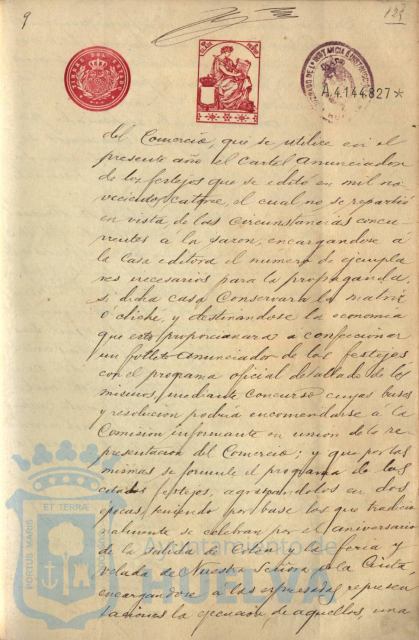 9
125
TIMBRE DEL ESTADO
JUZGADO DE 1ª INSTANCIA É INSTRUCCION
A4.144.827*
del Comercio, que se utilice en el
presente año el cartel anunciador
de los festejos que se editó en mil no
vecientos catorce, el cual no se repartió
en vista de las circunstancias concu
rrentes á la sazon, encargandose á
la Casa editora el numero de ejempla
res necesarios para la propaganda,
si dicha casa conservara la matriz
ó cliché, y destinandose la economia
que esto proporcionara a confeccionar
un folleto anunciador de los festejos
con el programa oficial detallado de los
mismos, mediante concurso cuyas bases
y resolucion podria encomendarse á la
Comision informante en union de la re
presentacion del Comercio; y que por las
mismas se formule el programa de los
citados festejos, agrupandolos en dos
epocas, teniendo por base los que tradicio
nalmente se celebran por el aniversario
de la salida de Colon y la feria y
velada de Nuestra Señora de la Cinta,
encargandose a las expresadas represen
taciones la ejecucion de aquellos, una
PORTUS MARIS
ET TERRAE CUSTODIA
Ayuntamiento de
HUELVA